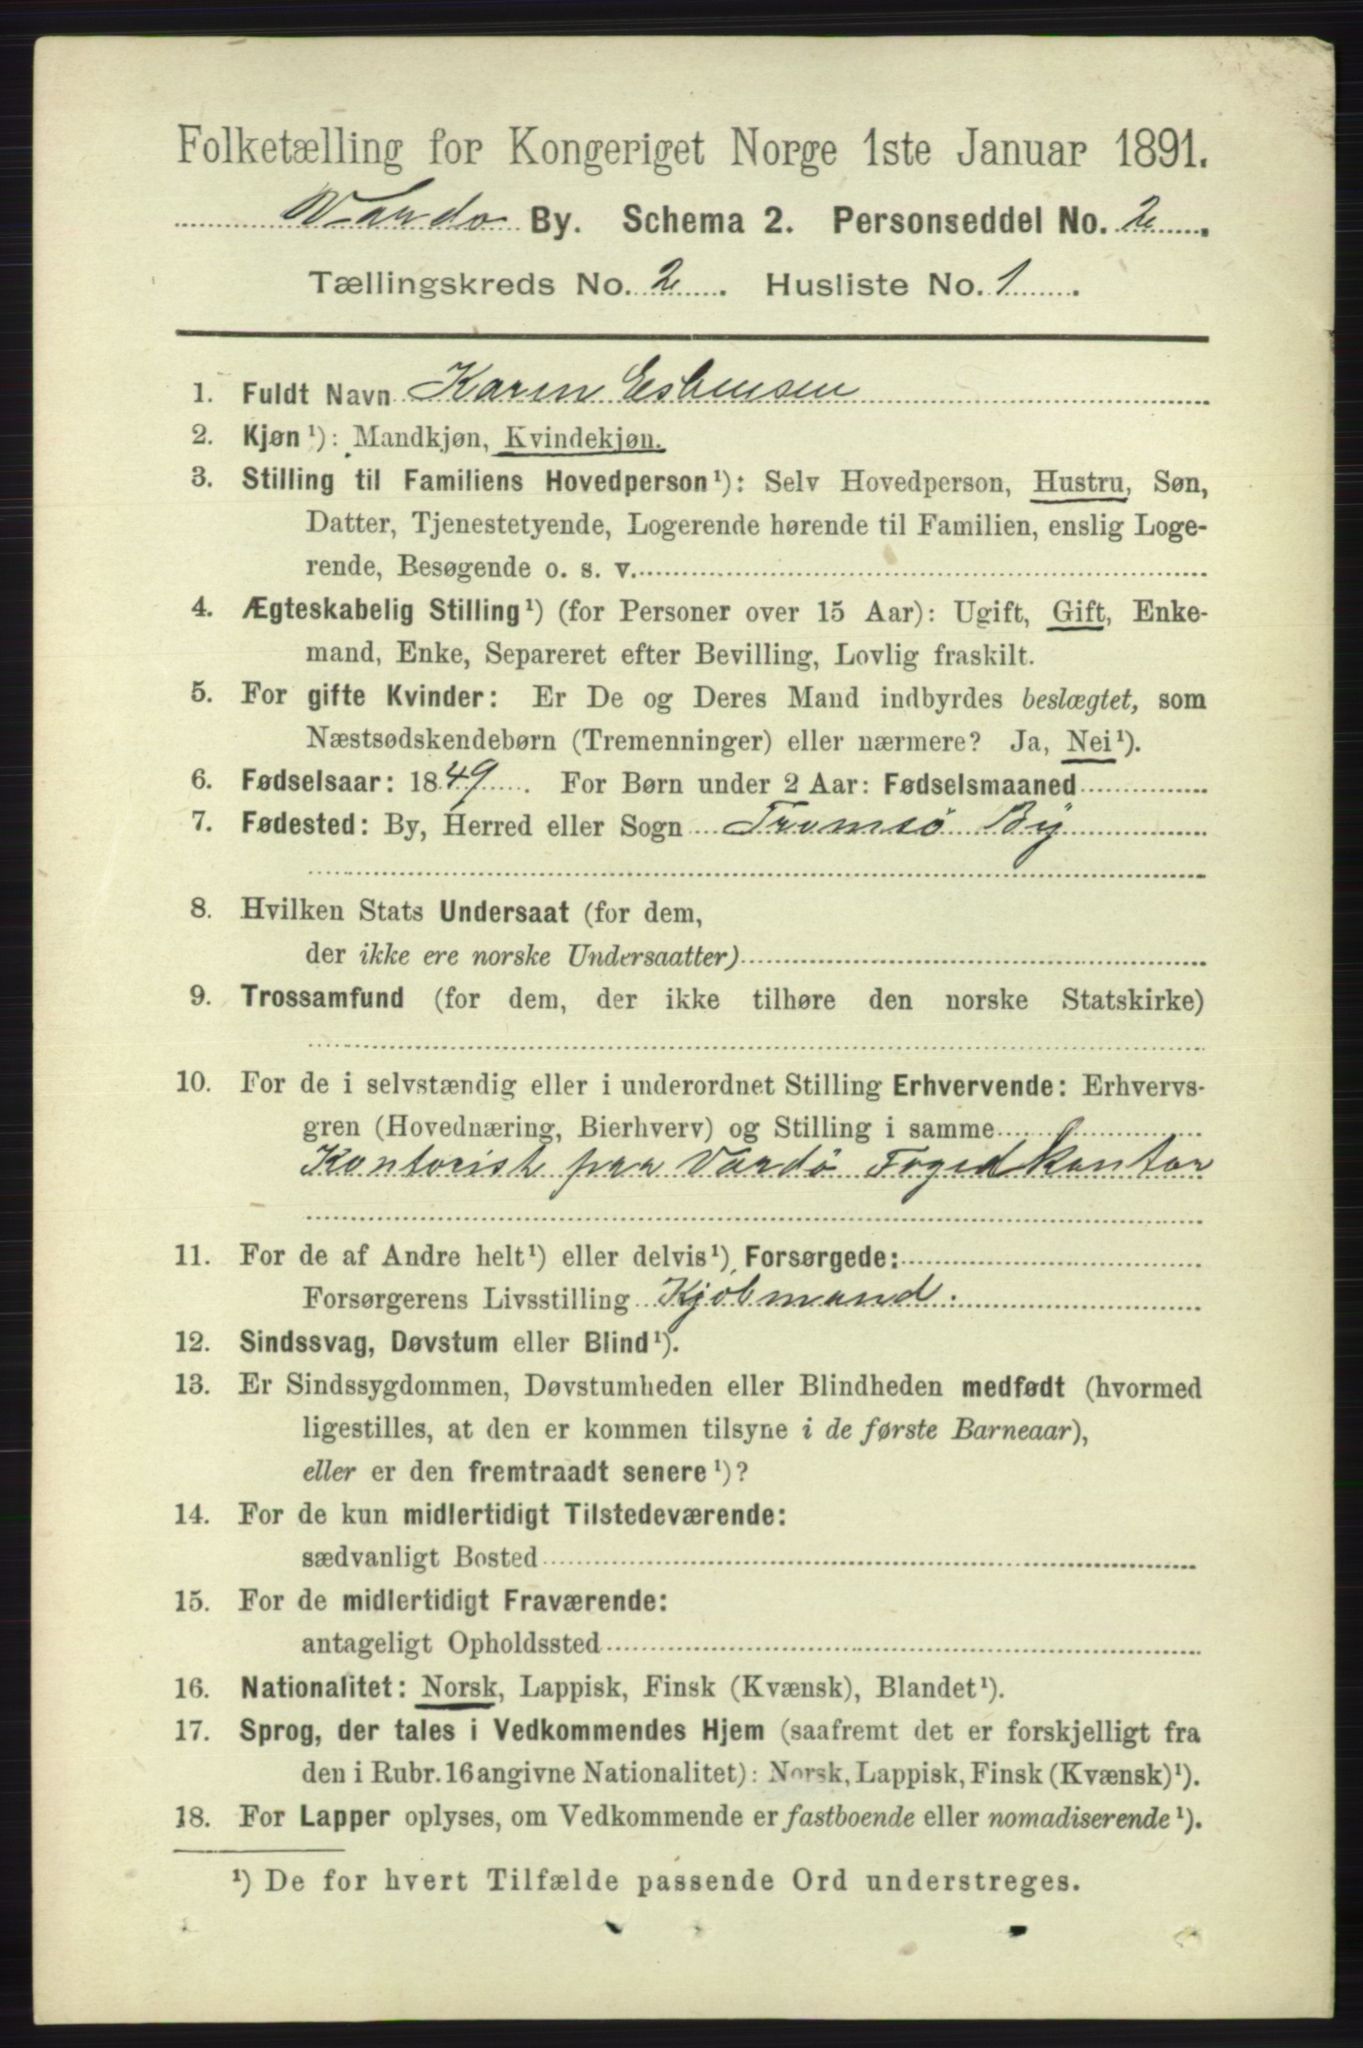 Folketælling for Kongeriget Norge 1ste Januar 1891.
Vardø By. Schema 2. Personseddel No. 2.
Tællingskreds No. 2. Husliste No. 1.
1. Fuldt Navn Karen Esbensen
2. Kjøn¹): Mandkjøn, Kvindekjøn.
3. Stilling til Familiens Hovedperson¹): Selv Hovedperson, Hustru, Søn,
Datter, Tjenestetyende, Logerende hørende til Familien, enslig Loge-
rende, Besøgende o. s. v.
4. Ægteskabelig Stilling¹) (for Personer over 15 Aar): Ugift, Gift, Enke-
mand, Enke, Separeret efter Bevilling, Lovlig fraskilt.
5. For gifte Kvinder: Er De og Deres Mand indbyrdes beslægtet, som
Næstsødskendebørn (Tremenninger) eller nærmere? Ja, Nei¹).
6. Fødselsaar: 1849. For Børn under 2 Aar: Fødselsmaaned
7. Fødested: By, Herred eller Sogn Tromsö By
8. Hvilken Stats Undersaat (for dem,
der ikke ere norske Undersaatter)
9. Trossamfund (for dem, der ikke tilhøre den norske Statskirke)
10. For de i selvstændig eller i underordnet Stilling Erhvervende: Erhvervs-
gren (Hovednæring, Bierhverv) og Stilling i samme
Kontorist paa Vardö Fogedkontor
11. For de af Andre helt¹) eller delvis¹) Forsørgede:
Forsørgerens Livsstilling Kjøbmand.
12. Sindssvag, Døvstum eller Blind¹).
13. Er Sindssygdommen, Døvstumheden eller Blindheden medfødt (hvormed
ligestilles, at den er kommen tilsyne i de første Barneaar),
eller er den fremtraadt senere¹)?
14. For de kun midlertidigt Tilstedeværende:
sædvanligt Bosted
15. For de midlertidigt Fraværende:
antageligt Opholdssted
16. Nationalitet: Norsk, Lappisk, Finsk (Kvænsk), Blandet¹).
17. Sprog, der tales i Vedkommendes Hjem (saafremt det er forskjelligt fra
den i Rubr. 16 angivne Nationalitet): Norsk, Lappisk, Finsk (Kvænsk)¹).
18. For Lapper oplyses, om Vedkommende er fastboende eller nomadiserende¹).
¹) De for hvert Tilfælde passende Ord understreges.